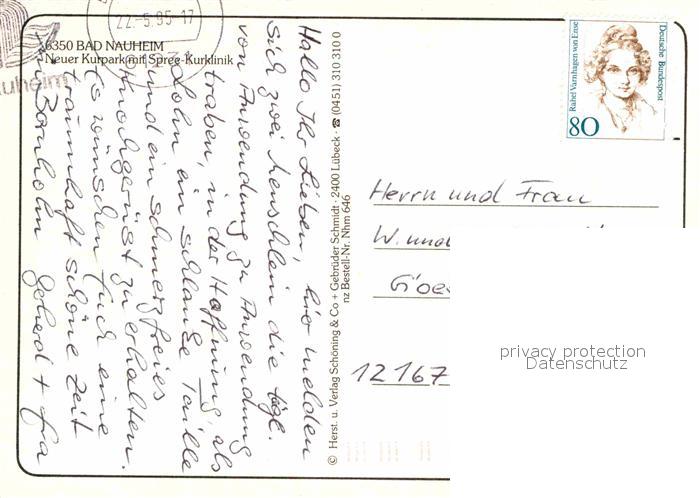 22.-5.95-17
auheim
6350 BAD NAUHEIM
Neuer Kurpark mit Spree-Kurklinik
Hallo Ihr Lieben, hier melden
sich zwei Menschlein die tägl.
von Anwendung zu Anwendung
traben, in der Hoffnung, als
Lohn ein schlanke Taille
und ein schmerzfreies
Knochgerüst zu erhalten.
Es wünschen Euch eine
traumhaft schöne Zeit
Bornholm Geherd +
© Herst. u. Verlag Schöning & Co + Gebrüder Schmidt · 2400 Lübeck · ☎ (0451) 310 310 0
nz Bestell-Nr. Nhm 646
Rahel Varnhagen von Ense
Deutsche Bundespost
80
Herrn und Frau
W. und
12167
privacy protection
Datenschutz